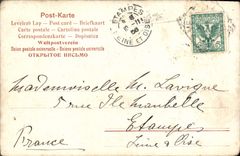 Post-Karte
Levelező Lap — Post card — Briefkaart
Carte postale — Cartolina postale
Correspondenzkarte — Dopisnice
Weltpostverein
Union postale universelle — Unione postale universale
ОТКРЫТОЕ ПИСЬМО
ETAMPES
SEINE ET OISE
Mademoiselle M. Lavigne
5 rue
Etampes
France
Seine & Oise